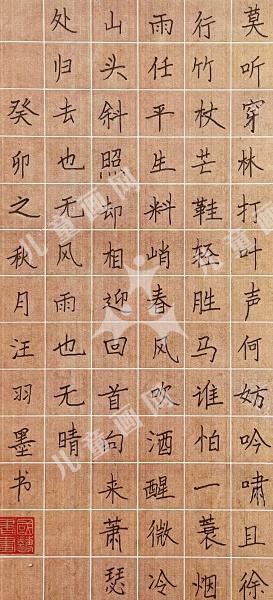 莫听穿林打叶声何妨吟啸且徐
行竹杖芒鞋轻胜马谁怕一蓑烟
雨任平生料峭春风吹酒醒微冷
山头斜照却相迎回首向来萧瑟
处归去也无风雨也无晴
癸卯之秋月汪羽墨书
儿童画网
儿童画网
儿童画网